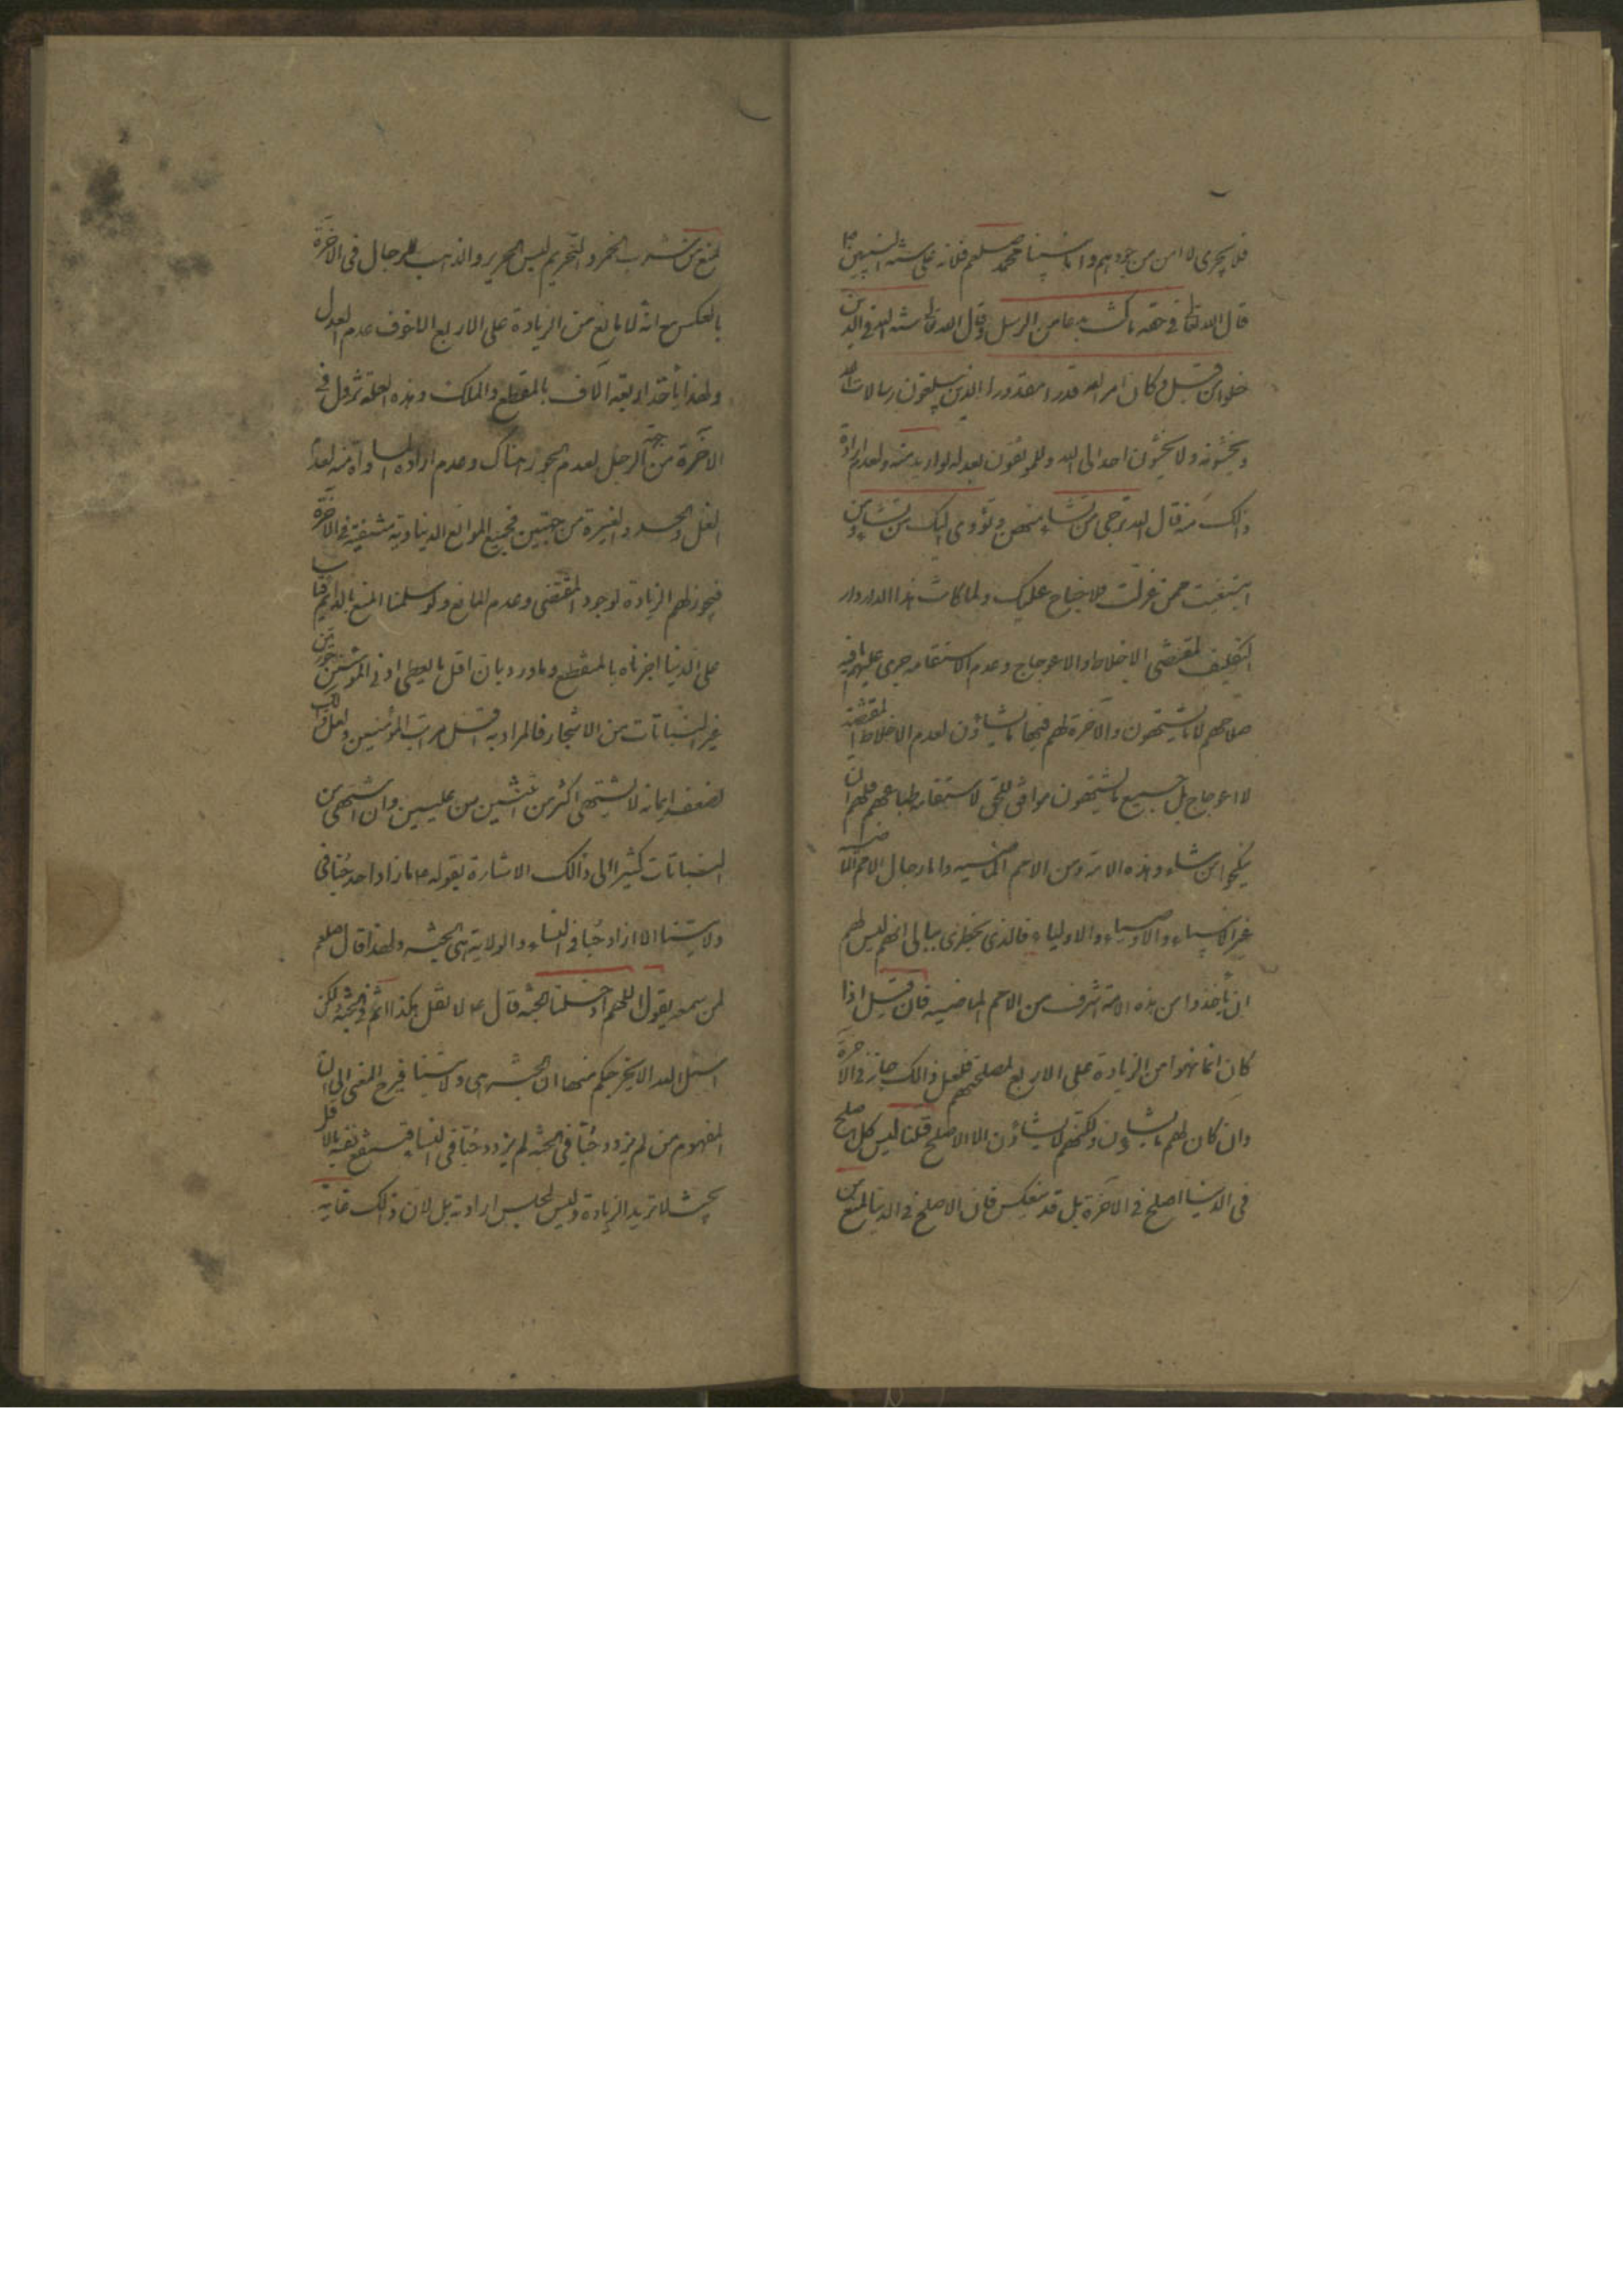 فلا يجرى لا من من جودهم واما نبينا محمد صلعم فلانه على سنة النبيين
قال الله تعالى فى حقه ما كنت بدعا من الرسل وقال الله تعالى سنة الله فى الذين
خلوا من قبل وكان امر الله قدرا مقدورا الذين يبلغون رسالات الله
ويخشونه ولا يخشون احدا الى الله وللموثقون بعدله لو اريد منه ولعدم ارادة
ذلك منه قال الله ترجى من تشاء منهن وتؤوى اليك من تشاء ومن
ابتغيت ممن عزلت فلا جناح عليك ولما كانت هذا الدار دار
التكليف المقتضى الاخلاط والاعوجاج وعدم الاستقامه جرى عليهم ما فيه
صلاحهم لا ما يشتهون والآخرة لهم فيها ما يشاؤن لعدم الاخلاط المقتضية
لا اعوجاج بل جميع ما يشتهون موافق للحق لاستقامة طباعهم فلهم ان
ينكحوا من شاء وهذه الامة ومن الامم الماضيه واما رجال الامم الماضية
غير الانبياء والاوصياء والاولياء فالذى يخطر فى ببالى انهم ليس لهم
ان يأخذوا من هذه الامة اشرف من الامم الماضيه فان قيل اذا
كان انما نهوا من الزيادة على الاربع لمصلحتهم فلعل ذلك جاز فى الآخرة
وان كان لهم ما يشاؤن ولكنهم لا يشاؤن الا الاصلح قلنا ليس كل اصلح
فى الدنيا اصلح فى الآخرة بل قد ينعكس فان الاصلح فى الدنيا المنع من
المنع من شرب الخمر والتحريم لبس الحرير والذهب للرجال فى الاخرة
بالعكس مع انه لا مانع من الزيادة على الاربع الا خوف عدم العدل
ولهذا يأخذ اربعة آلاف بالمقطع والملك وهذه العلة تزول فى
الآخرة من جهة الرجل لعدم الجور هناك وعدم ارادة المساواة منه لعدم
الغل والحسد والغيرة من جنتين فجميع الموانع الدنياوية منتفية فى الآخرة
فيجوز لهم الزيادة لوجود المقتضى وعدم المانع ولو سلمنا المنع بالدايم قياسا
على الدنيا اجزناه بالمقطع وما ورد بان اقل ما يعطى ادنى المؤمنين حورتين
غير النباتات من الاشجار فالمراد به اقل مراتب المؤمنين ولعل ذلك
لضعف ايمانه لا يشتهى اكثر من اثنتين من عليين وان اشتهى من
النباتات كثيرا الى ذلك الاشارة بقوله ما زاد احد حبا فى
ولايتنا الا ازاد حبا فى النساء والولاية هى الجنة ولهذا قال صلعم
لمن سمعه يقول اللهم ادخلنا الجنة قال لا تقل هكذا انتم فى الجنة ولكن
اسئل الله الا يخرجكم منها ان الجنة هى ولايتنا فيرجع المعنى الى ان
المفهوم من لم يزدد حبا فى الجنة لم يزدد حبا فى النساء فيستمتع نفيه بالاقل
بحيث لا تريد الزيادة وليس لحبس ارادته بل لان ذلك غاية